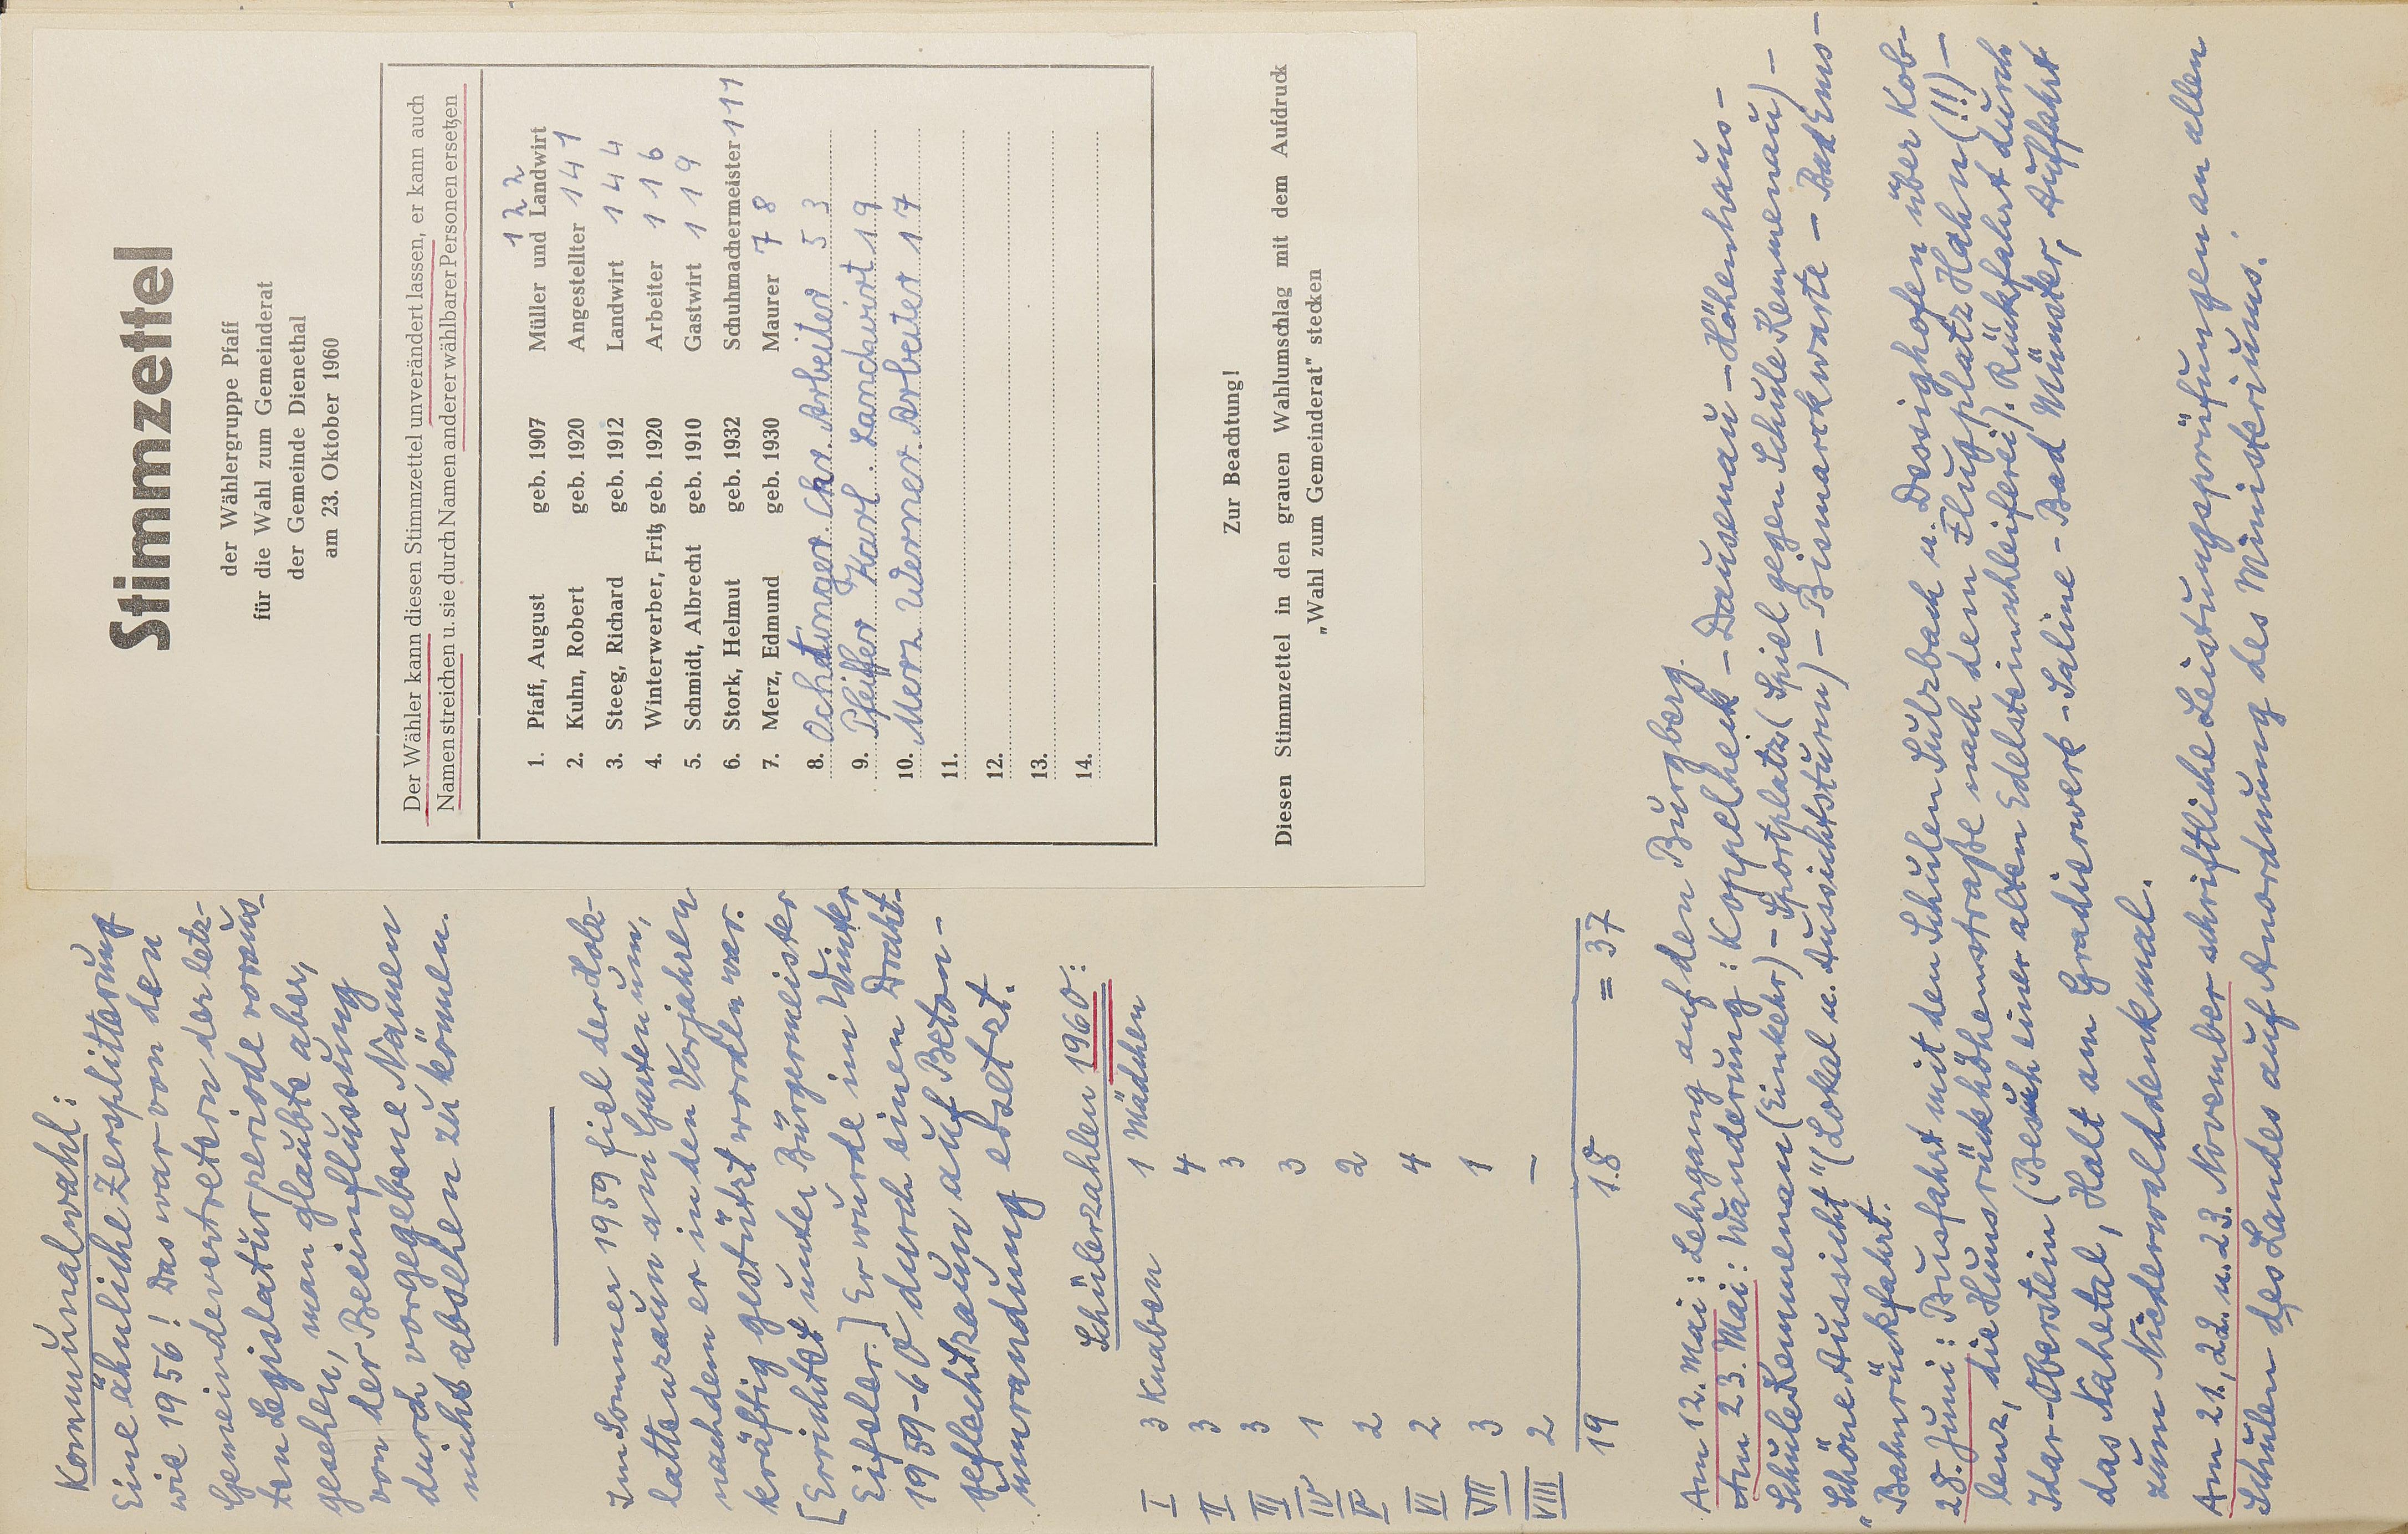 Kommunalwahl:
Eine ähnliche Zersplitterung
wie 1956! Das war von den
Gemeindevertretern der letz-
ten Legislaturperiode voraus-
gesehen, man glaubte aber,
von der Beeinflussung
durch vorgegebene Namen
nicht absehen zu können.
Stimmzettel
der Wählergruppe Pfaff
für die Wahl zum Gemeinderat
der Gemeinde Dienethal
am 23. Oktober 1960
Der Wähler kann diesen Stimmzettel unverändert lassen, er kann auch
Namen streichen u. sie durch Namen anderer wählbarer Personen ersetzen
1. Pfaff, August geb. 1907 Müller und Landwirt 122
2. Kuhn, Robert geb. 1920 Angestellter 141
3. Steeg, Richard geb. 1912 Landwirt 144
4. Winterwerber, Fritz geb. 1920 Arbeiter 116
5. Schmidt, Albrecht geb. 1910 Gastwirt 119
6. Stork, Helmut geb. 1932 Schuhmachermeister 111
7. Merz, Edmund geb. 1930 Maurer 78
8. Ochtinger Chr. Arbeiter 53
9. Pfeiffer Karl Landwirt 19
10. Merz Werner Arbeiter 17
11.
12.
13.
14.
Zur Beachtung!
Diesen Stimmzettel in den grauen Wahlumschlag mit dem Aufdruck
„Wahl zum Gemeinderat" stecken
Im Sommer 1959 fiel der Holz-
lattenzaun am Garten um,
nachdem er in den Vorjahren
kräftig gestützt worden war.
[Errichtet unter Bürgermeister
Eifeler.] Er wurde im Winter
1959-60 durch einen Draht-
geflechtzaun auf Beton-
umrandung ersetzt.
Schülerzahlen 1960:
I 3 Knaben 1 Mädchen
II 3 4
III 3 3
IV 1 3
V 2 2
VI 2 4
VII 3 1
VIII 2 —
19 18 = 37
Am 12. Mai: Lehrgang auf den Burgberg.
Am 23. Mai: Wanderung: Koppelheck – Dausenau – Höhenhaus –
Schule Kemmenau (Einkehr) – Sportplatz (Spiel gegen Schule Kemmenau) –
"Schöne Aussicht" (Lokal u. Aussichtsturm) – Bismarckwarte – Bad Ems –
Bahnrückfahrt.
28. Juni: Busfahrt mit den Schulen Sulzbach u. Dessighofen über Kob-
lenz, die Hunsrückhöhenstraße nach dem Flugplatz Hahn (!!) –
Idar-Oberstein (Besuch einer alten Edelsteinschleiferei). Rückfahrt durch
das Nahetal, Halt am Gradierwerk - Saline - Bad Münster, Auffahrt
zum Niederwalddenkmal.
Am 21., 22. u. 23. November schriftliche Leistungsprüfungen an allen
Schulen des Landes auf Anordnung des Ministeriums.